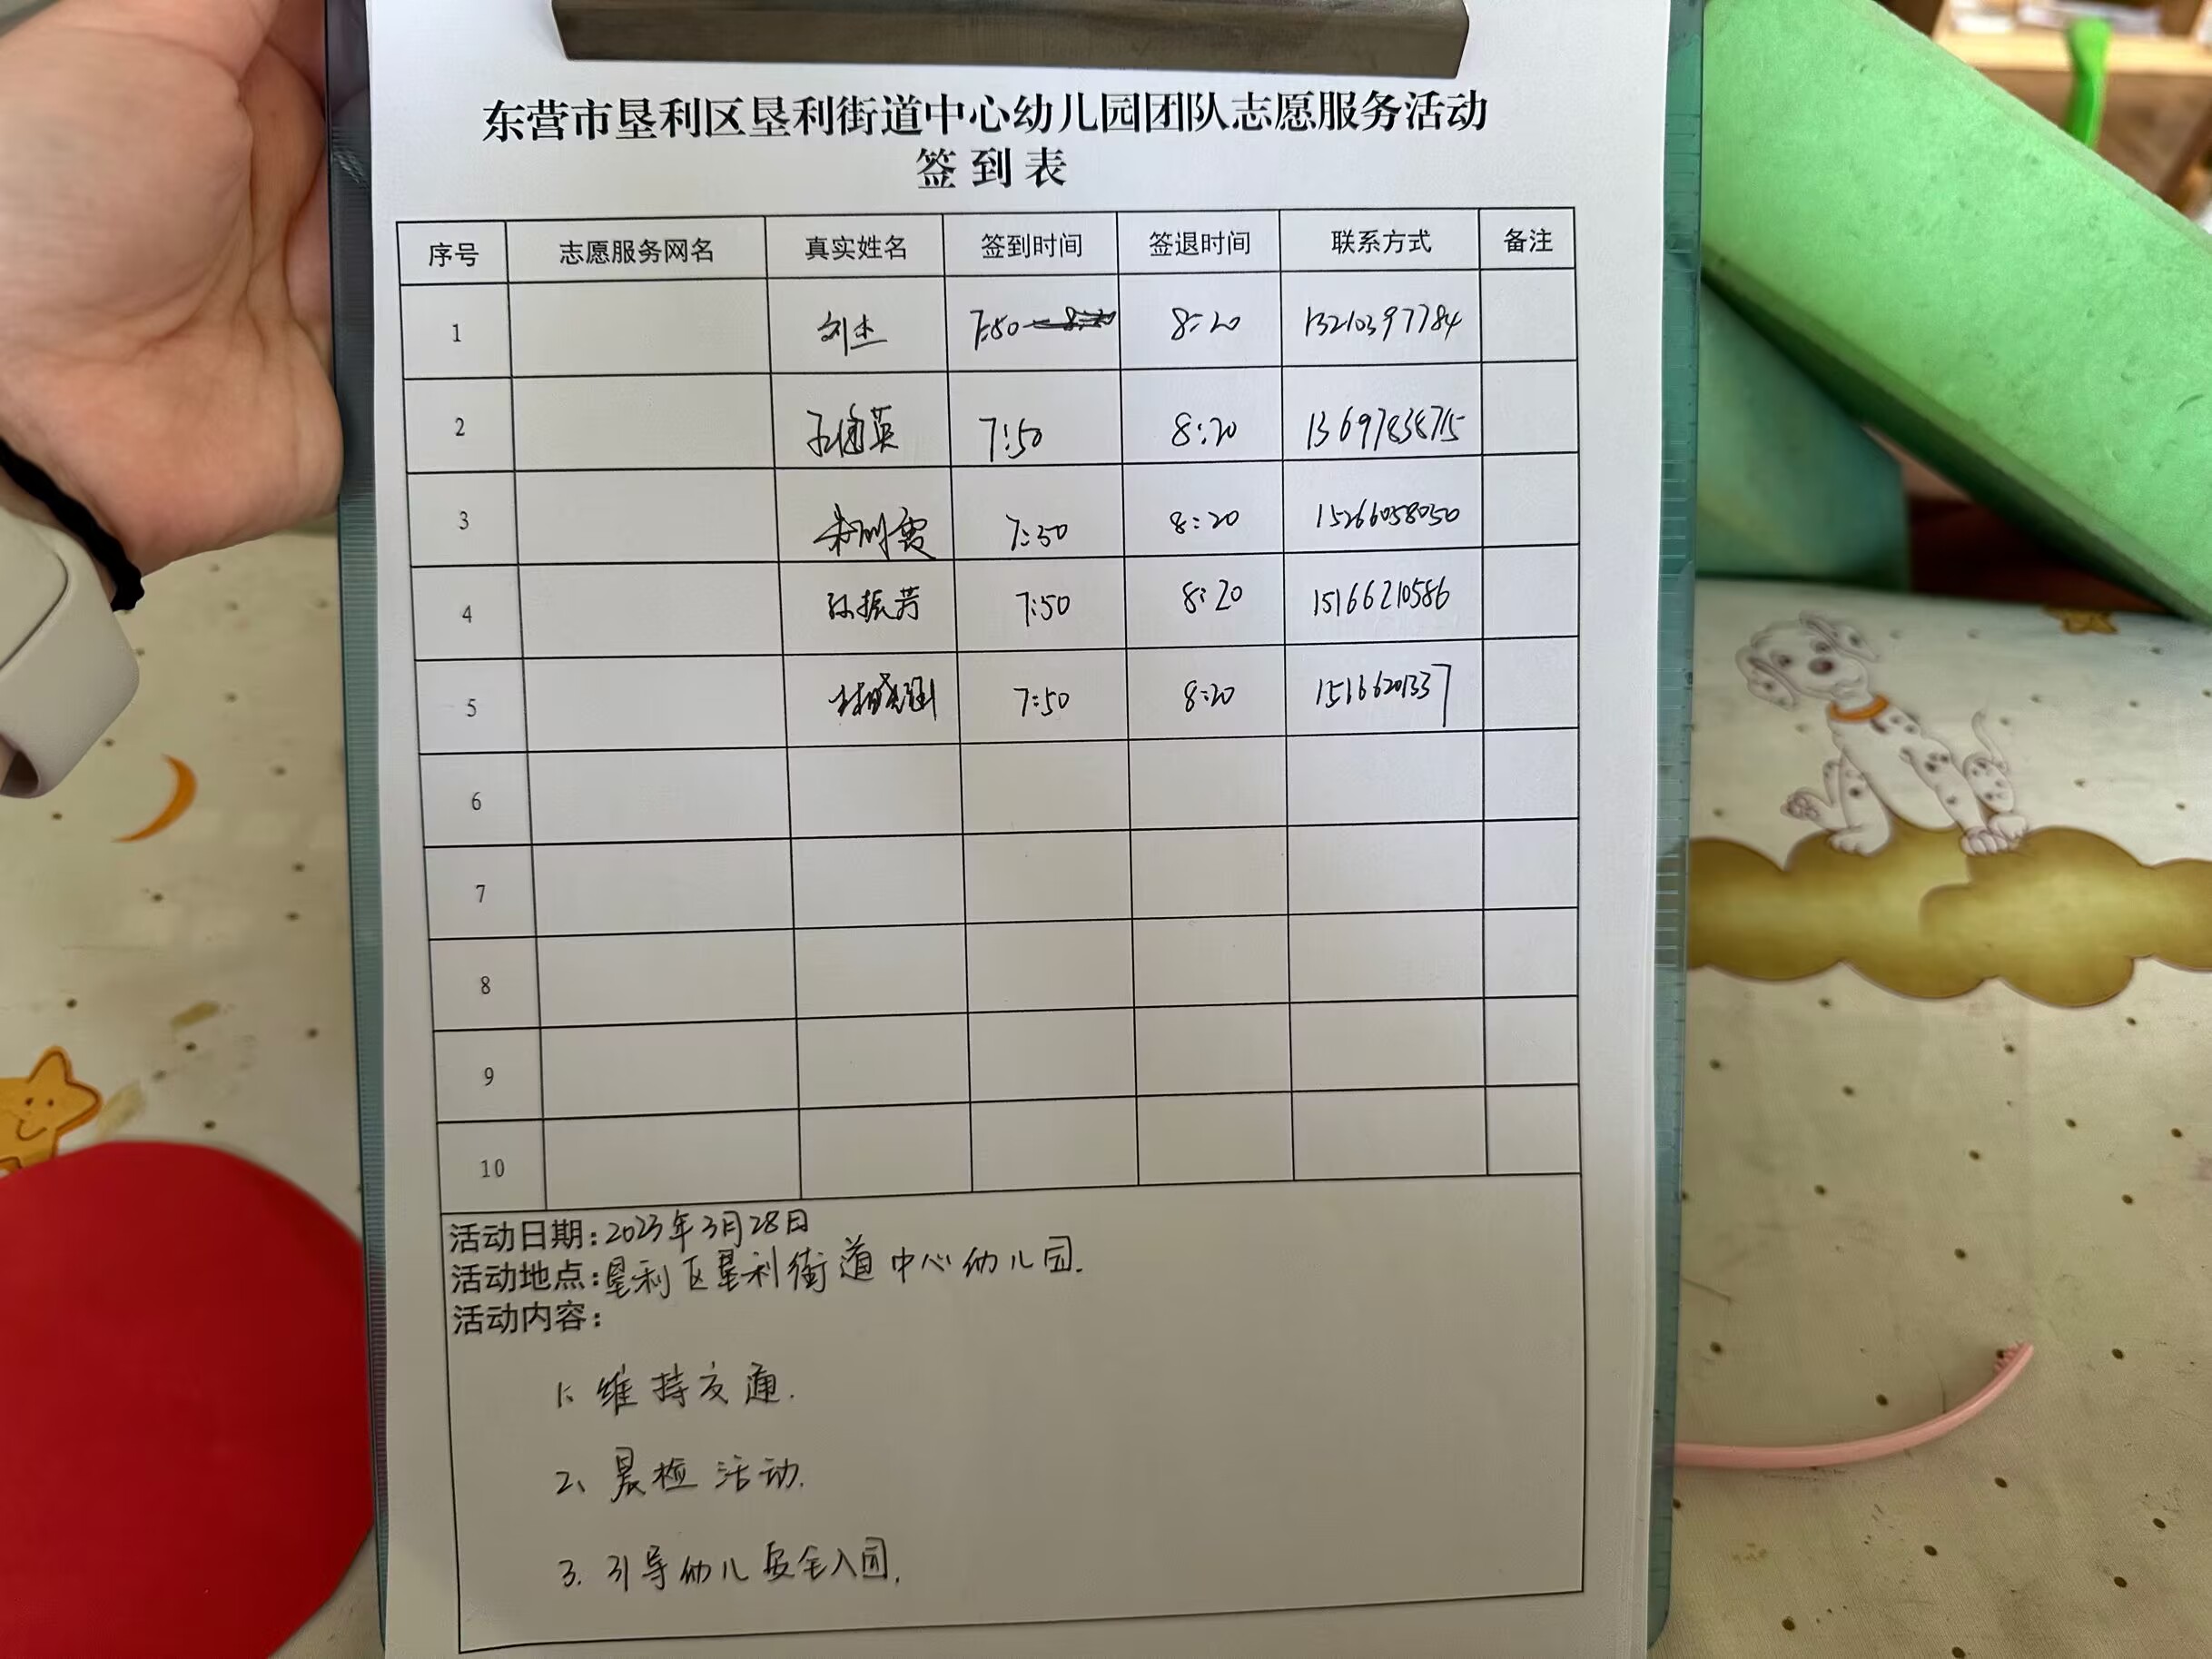 东营市垦利区垦利街道中心幼儿园团队志愿服务活动
签到表
序号 志愿服务网名 真实姓名 签到时间 签退时间 联系方式 备注
1 刘杰 7:50 8:20 13210397784
2 7:50 8:20 13697838715
3 7:50 8:20 15266058050
4 孙振芳 7:50 8:20 15166210586
5 7:50 8:20 15166201337
6
7
8
9
10
活动日期:2023年3月28日
活动地点:垦利区垦利街道中心幼儿园.
活动内容:
1、维持交通.
2、晨检活动.
3. 引导幼儿安全入园.